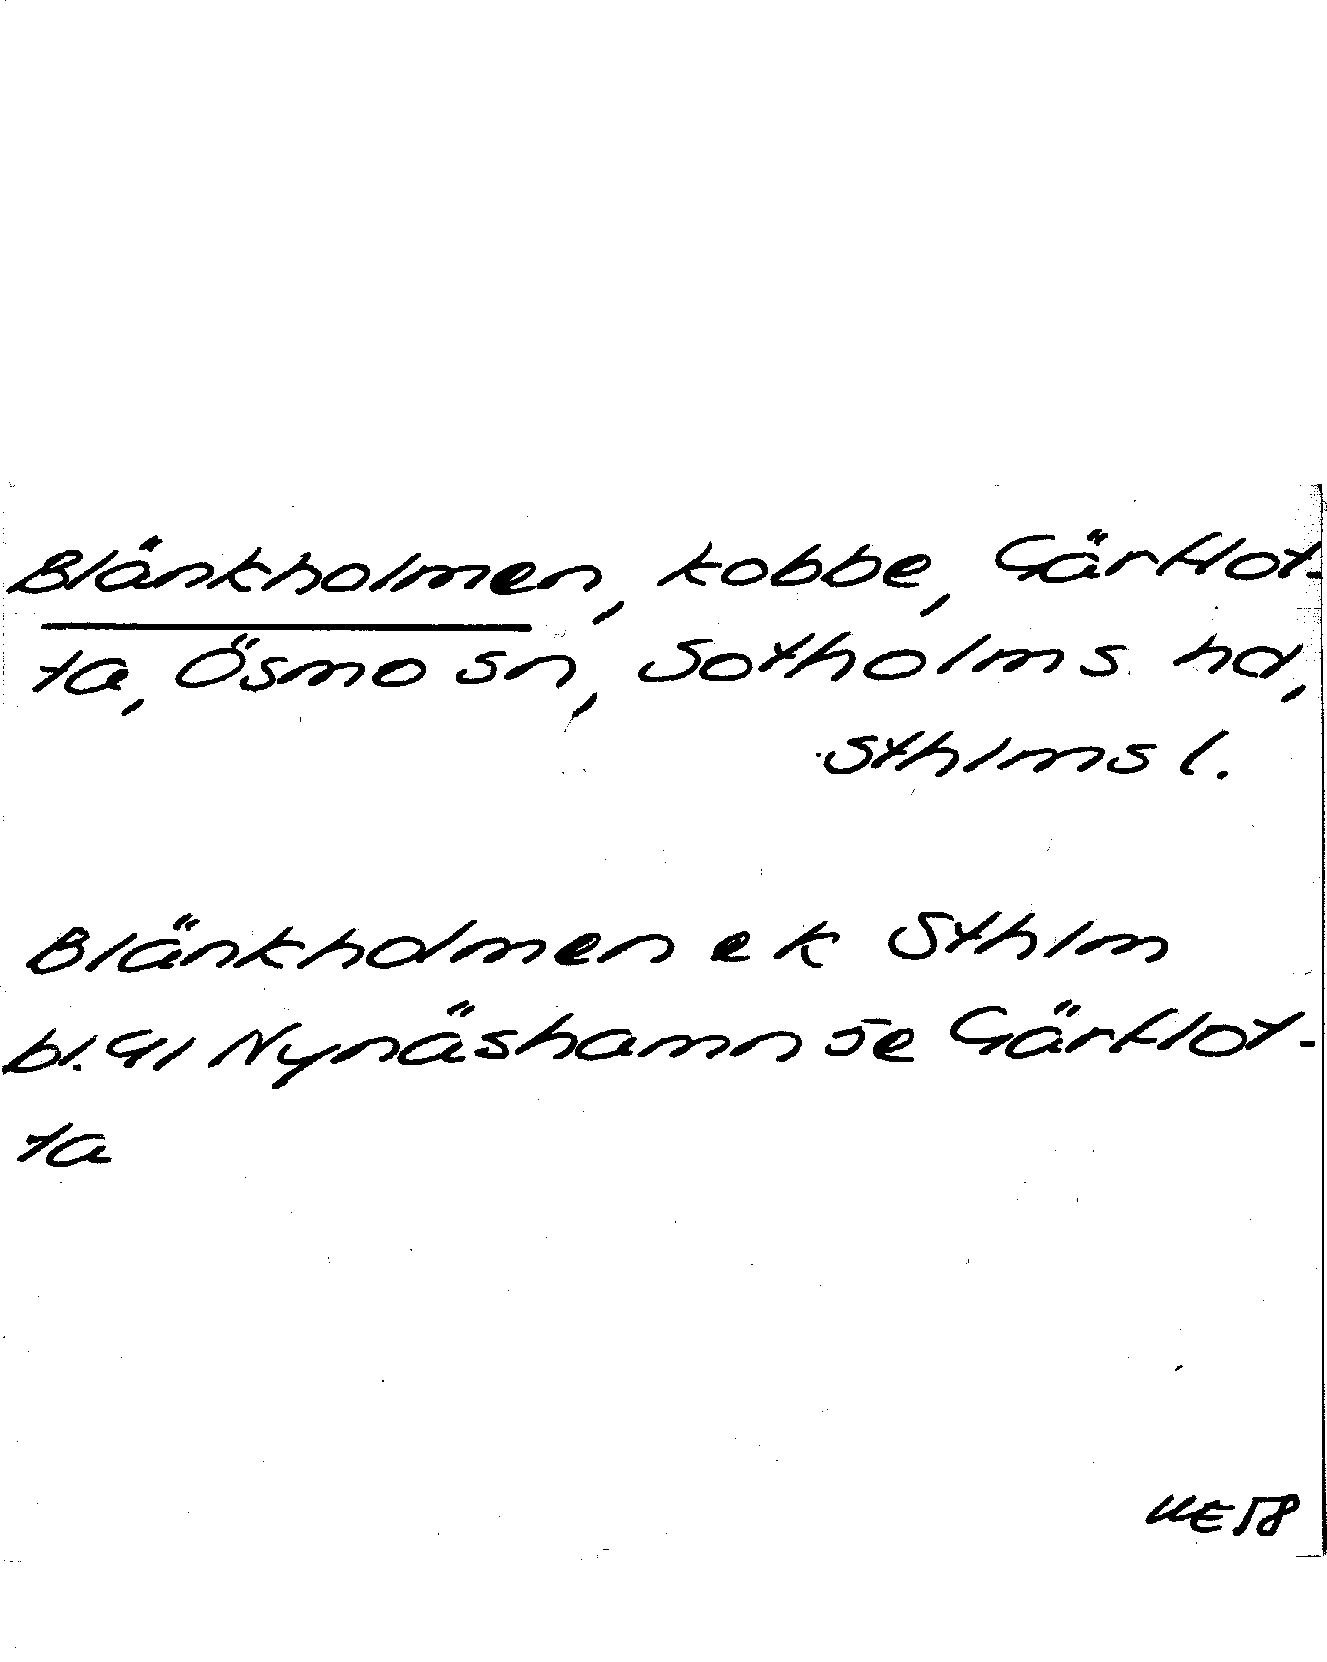 Blänkholmen, kobbe, Gärflot-
ta, Ösmo sn, Sotholms hd,
Sthlms l.
Blänkholmen ek Sthlm
bl. 91 Nynäshamn se Gärflot-
ta
UE 58